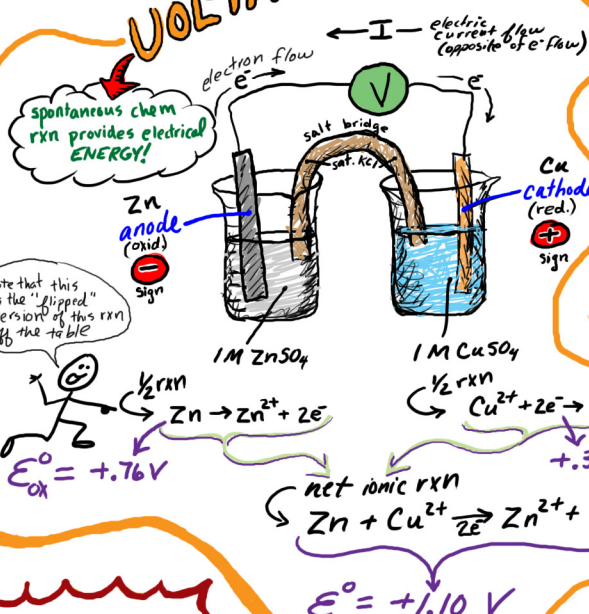 VOLTA
← I — electric
current flow
(opposite of e⁻ flow)
electron flow
e⁻ →
V
— e⁻
spontaneous chem
rxn provides electrical
ENERGY!
salt bridge
sat. KCl
Zn
anode
(oxid)
−
sign
Cu
cathode
(red.)
+
sign
this
the "flipped"
of this rxn
the table
1M ZnSO₄
1M CuSO₄
½ rxn
Zn → Zn²⁺ + 2e⁻
½ rxn
Cu²⁺ + 2e⁻ →
ℰ°ox = +.76V
+.3
net ionic rxn
Zn + Cu²⁺ ⇌ 2e⁻ Zn²⁺ +
ℰ° = +1.10 V